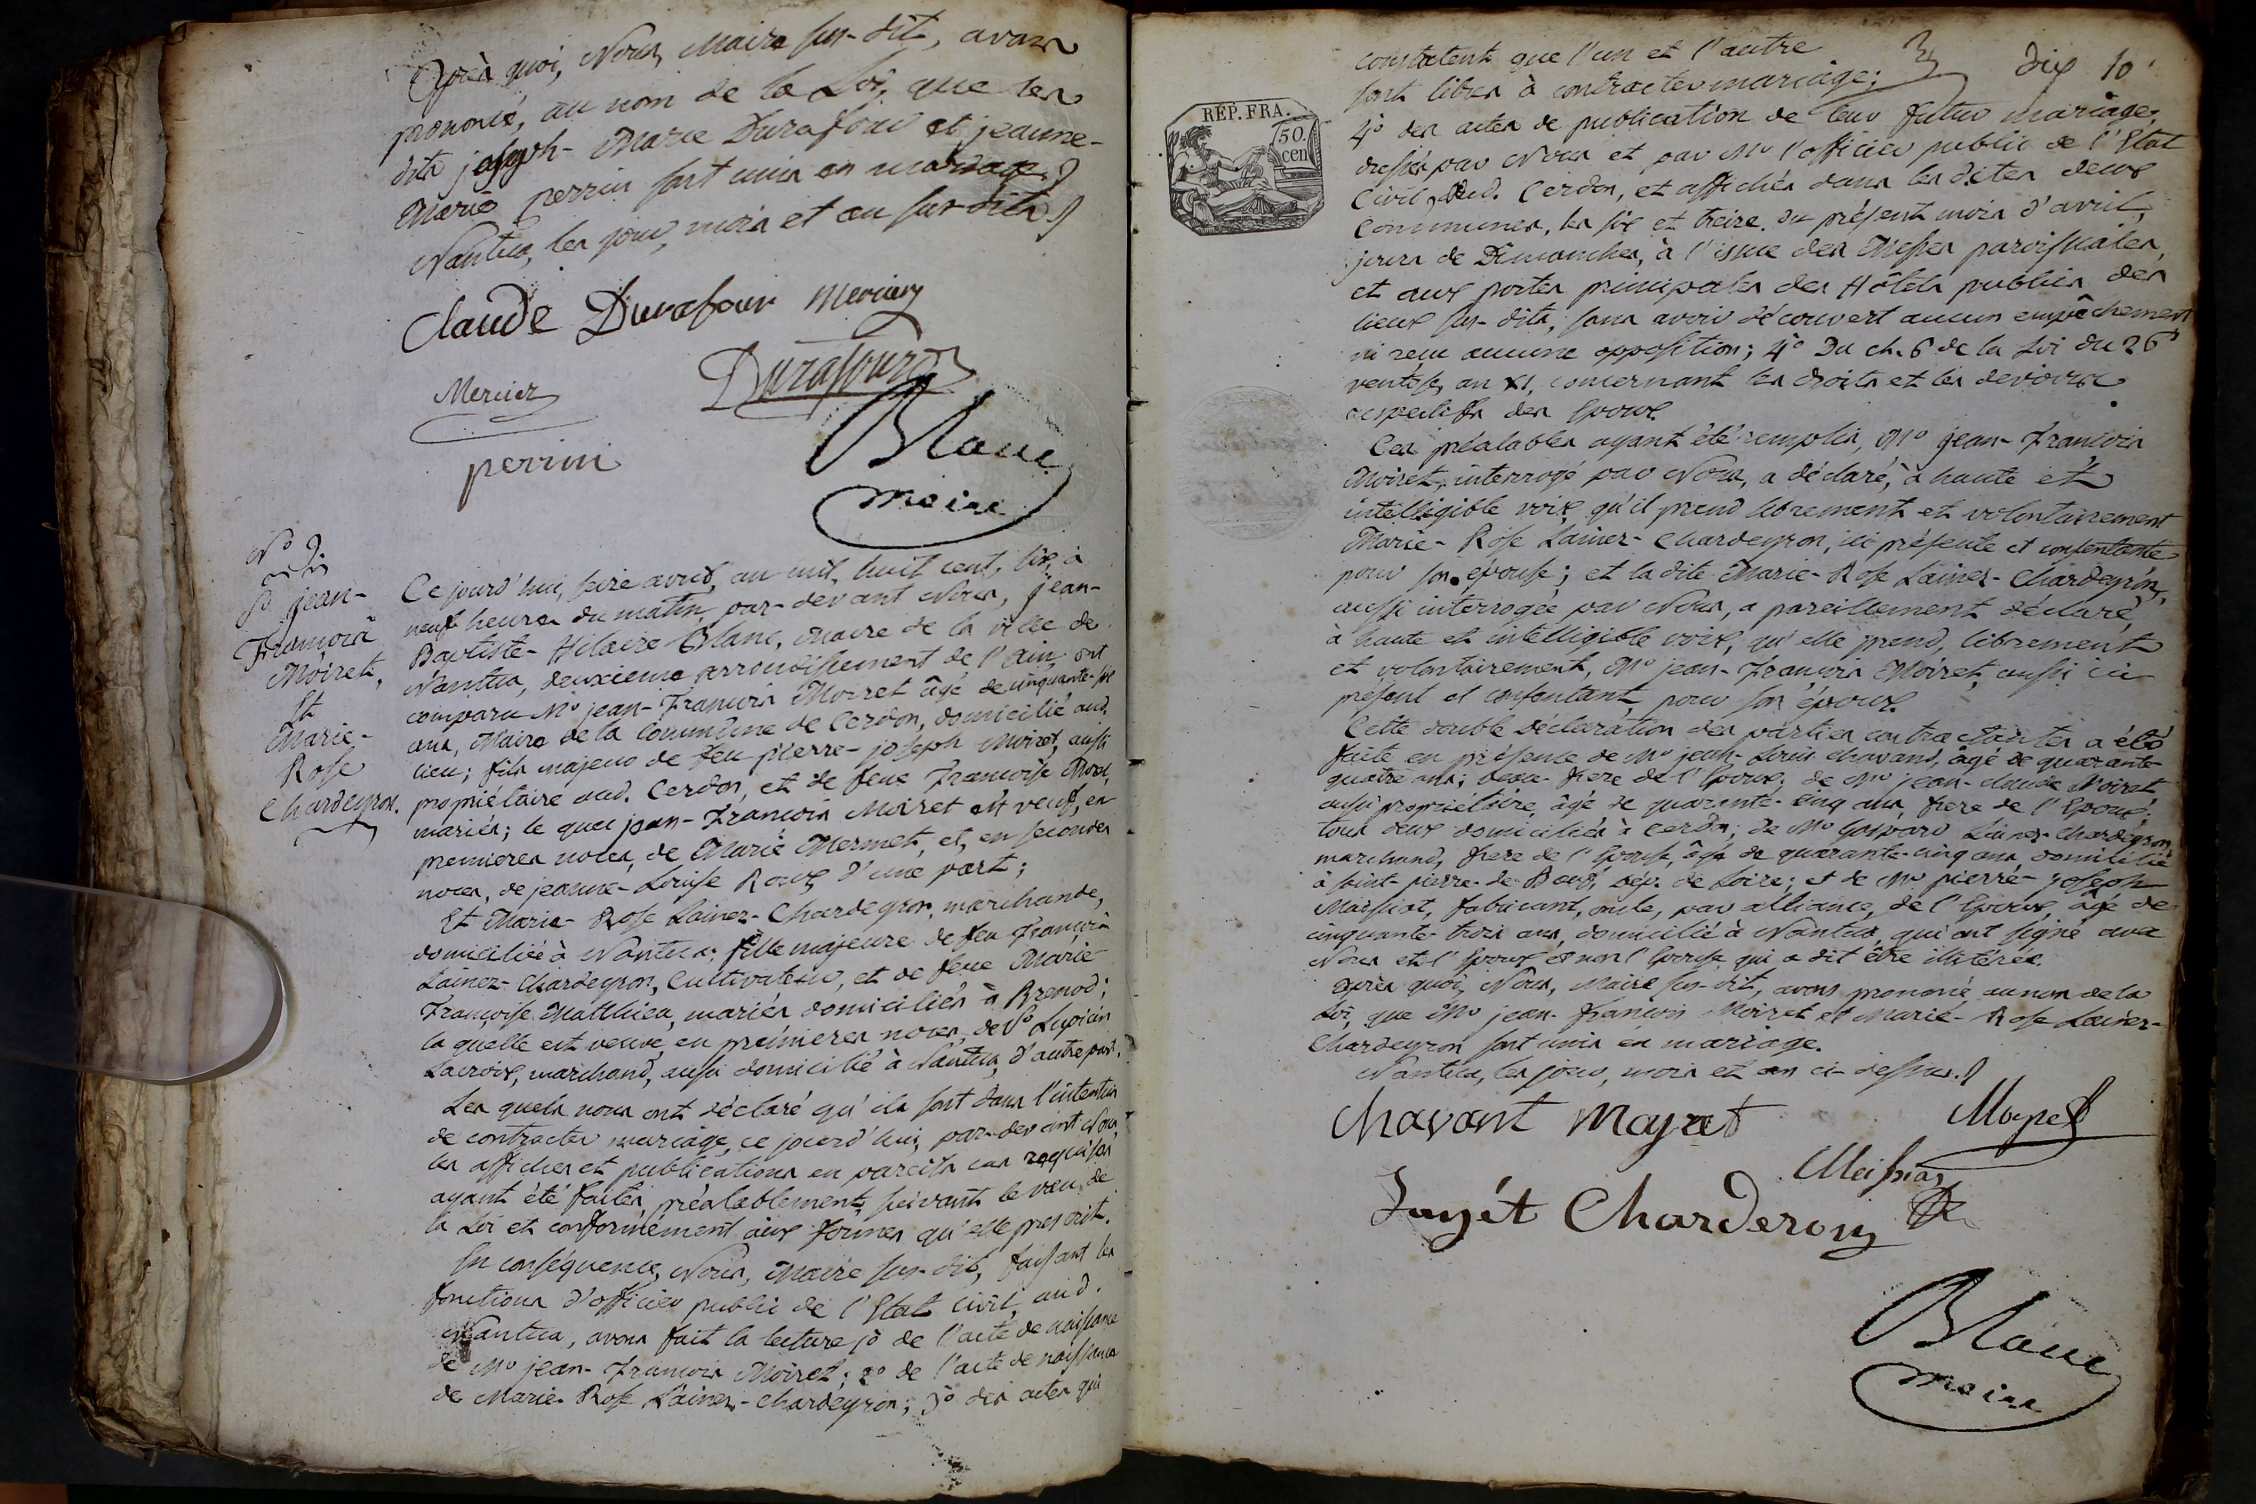 Après quoi, Nous, Maire sus-dit, avons
prononcé, au nom de la Loi, que les
dits joseph-Marie Durafour et jeanne-
Marie perrin sont unis en mariage.
Nantua, les jour, mois et an sus-dits
Claude Durafour Mercier
Durafour
Mercier
perrin
Blanc
maire
N° 9
jean-
François
Moiret,
Et
Marie-
Rose
Chardeyron.
Ce jourd'hui, seize avril, an mil, huit cent, six, à
neuf heures du matin, par-devant Nous, jean-
Baptiste-Hilaire Blanc, Maire de la ville de
Nantua, deuxieme arrondissement de l'ain, ont
comparu Mr jean-François Moiret âgé de cinquante-six
ans, Maire de la Commune de Cerdon, domicilié aud.
lieu; fils majeur de feu pierre-joseph Moiret, aussi
propriétaire aud. Cerdon, et de feue Françoise
mariés; le quel jean-François Moiret est veuf, en
premieres noces, de Marie Mermet, et, en secondes
noces, de jeanne-Louise Roux, d'une part;
Et Marie-Rose Lainez-Chardeyron, marchande,
domiciliée à Nantua; fille majeure de feu François
Lainez-Chardeyron, Cultivateur, et de feue Marie
Françoise Matthieu, mariés domiciliés à Brenod;
la quelle est veuve, en premieres noces, de Sr Lupicin
Lacroix, marchand, aussi domicilié à Nantua, d'autre part.
Les quels nous ont déclaré qu'ils sont dans l'intention
de contracter mariage, ce jourd'hui, par-devant Nous,
les affiches et publications en pareils cas requises
ayant été faites, préalablement, suivant le vœu de
la Loi et conformément aux formes qu'elle prescrit.
En conséquence, Nous, Maire sus-dit, faisant les
fonctions d'officier public de l'Etat civil, aud.
Nantua, avons fait la lecture 1° de l'acte de naissance
de Mr jean-François Moiret; 2° de l'acte de naissance
de Marie-Rose Lainez-Chardeyron; 3° des actes qui
dix 10
constatent que l'un et l'autre
sont libres à contracter mariage;
REP. FRA.
50.
cen
4° des actes de publication de leur futur mariage,
dressés par Nous et par Mr l'officier public de l'Etat
Civil, aud. Cerdon, et affichés dans les dites deux
Communes, les six et treize du présent mois d'avril,
jours de Dimanches, à l'issue des Messes paroissiales,
et aux portes principales des Hôtels publics des
lieux sus-dits, sans avoir découvert aucun empêchement
ni reçu aucune opposition; 4° Du ch. 6 de la Loi du 26
ventose, an XI, concernant les droits et les devoirs
respectifs des Epoux.
Ces préalables ayant été remplis, Mr jean-François
Moiret, interrogé par Nous, a déclaré, à haute et
intelligible voix, qu'il prend librement et volontairement
Marie-Rose Lainez-Chardeyron, ici présente et consentante
pour son épouse; et la dite Marie-Rose Lainez-Chardeyron,
aussi interrogée par Nous, a pareillement déclaré,
à haute et intelligible voix, qu'elle prend, librement
et volontairement, Mr jean-François Moiret, aussi ici
présent et consentant, pour son époux.
Cette double déclaration des parties contractantes a été
faite en présence de Mr jean-Louis Chavant, âgé de quarante-
quatre ans, beau-frere de l'Epoux; de Mr jean-claude Moiret
aussi propriétaire, âgé de quarante-cinq ans, frere de l'Epoux;
tous deux domiciliés à Cerdon; de Mr Gaspard Lainez-Chardeyron
marchand, frere de l'Epouse, âgé de quarante-cinq ans, domicilié
à saint-pierre-de-Bœuf, dép. de Loire; et de Mr pierre-joseph
Maissiat, fabricant, oncle, par alliance, de l'Epoux, âgé de
cinquante-trois ans, domicilié à Nantua, qui ont signé avec
Nous et l'Epoux et non l'Epouse qui a dit être illitérée.
Après quoi, Nous, Maire sus-dit, avons prononcé, au nom de la
Loi, que Mr jean-François Moiret et Marie-Rose Lainez-
Chardeyron sont unis en mariage.
Nantua, les jour, mois et an ci-dessus.
Chavant
Charderon
Blanc
maire